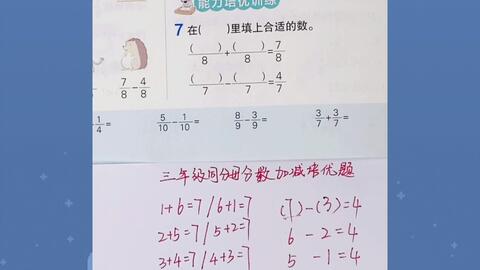 能力培优训练
7 在( )里填上合适的数。
( )/8 + ( )/8 = 7/8
7/8 - 4/8
( )/7 - ( )/7 = 4/7
1/4 =
5/10 - 1/10 =
8/9 - 3/9 =
3/7 + 3/7 =
三年级同分母分数加减培优题
1+6=7 / 6+1=7 (7)-(3)=4
2+5=7 / 5+2=7 6-2=4
3+4=7 / 4+3=7 5-1=4